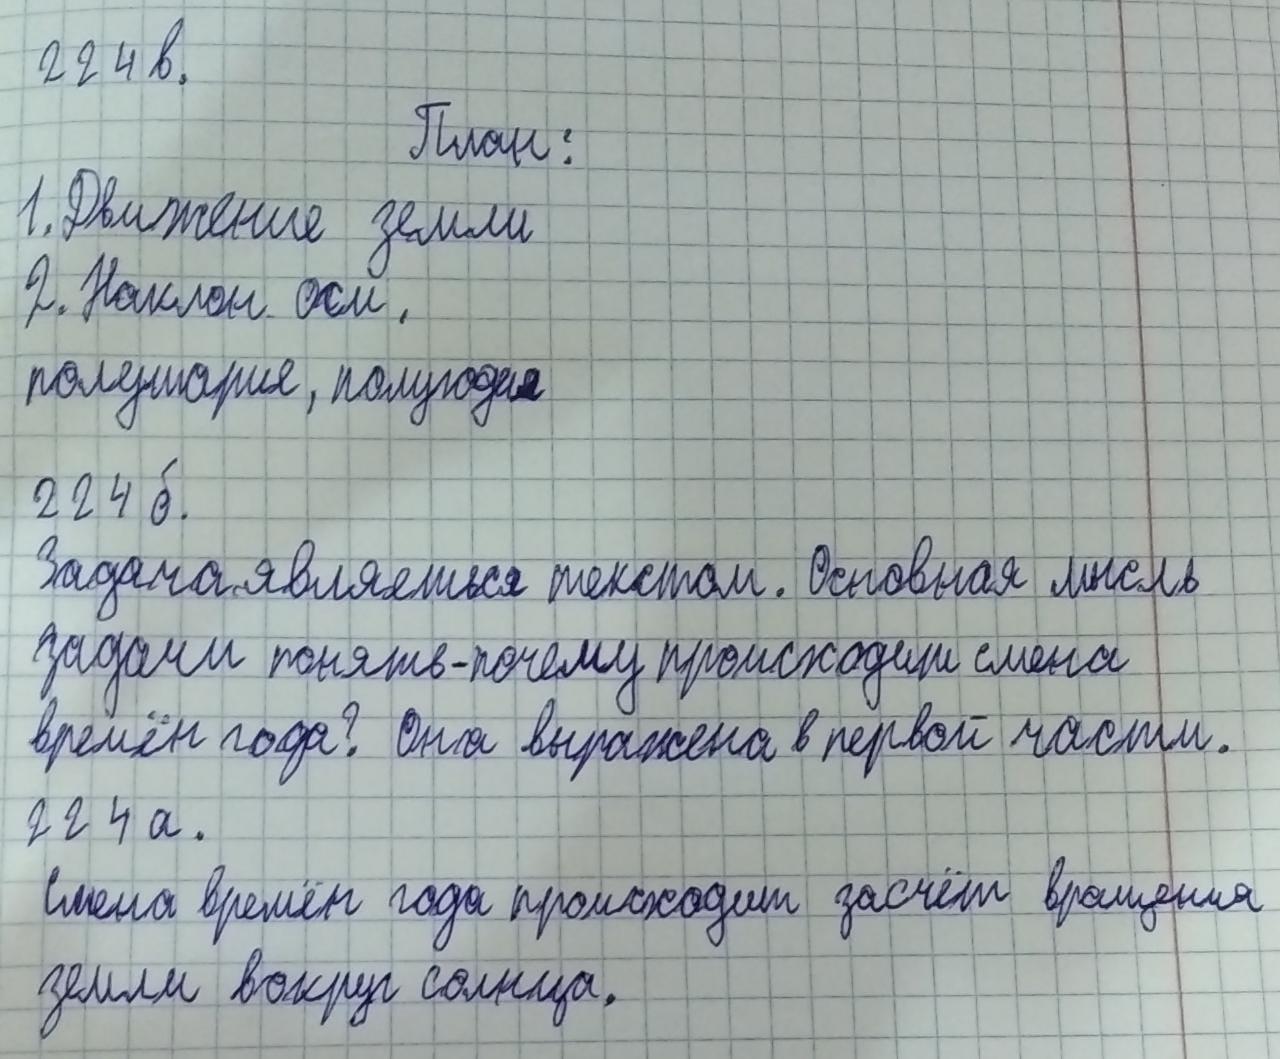 224в.
План:
1. Движение земли
2. Наклон оси,
полушария, полугодия
224б.
Задача является текстом. Основная мысль
задачи понять-почему происходит смена
времён года? Она выражена в первой части.
224а.
Смена времён года происходит засчёт вращения
земли вокруг солнца.